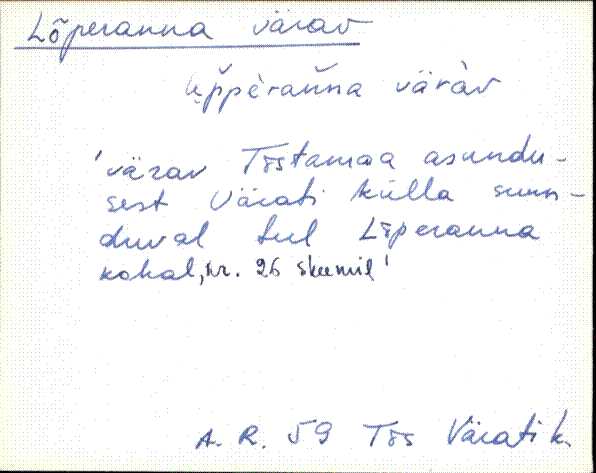 Lõperanna värav
lə̑ppèrañna väràv
'värav Tõstamaa asundu-
sest Värati külla suun-
duval teel Lõperanna
kohal, nr. 26 skeemil'
A. R. 59 Tõs Värati k.